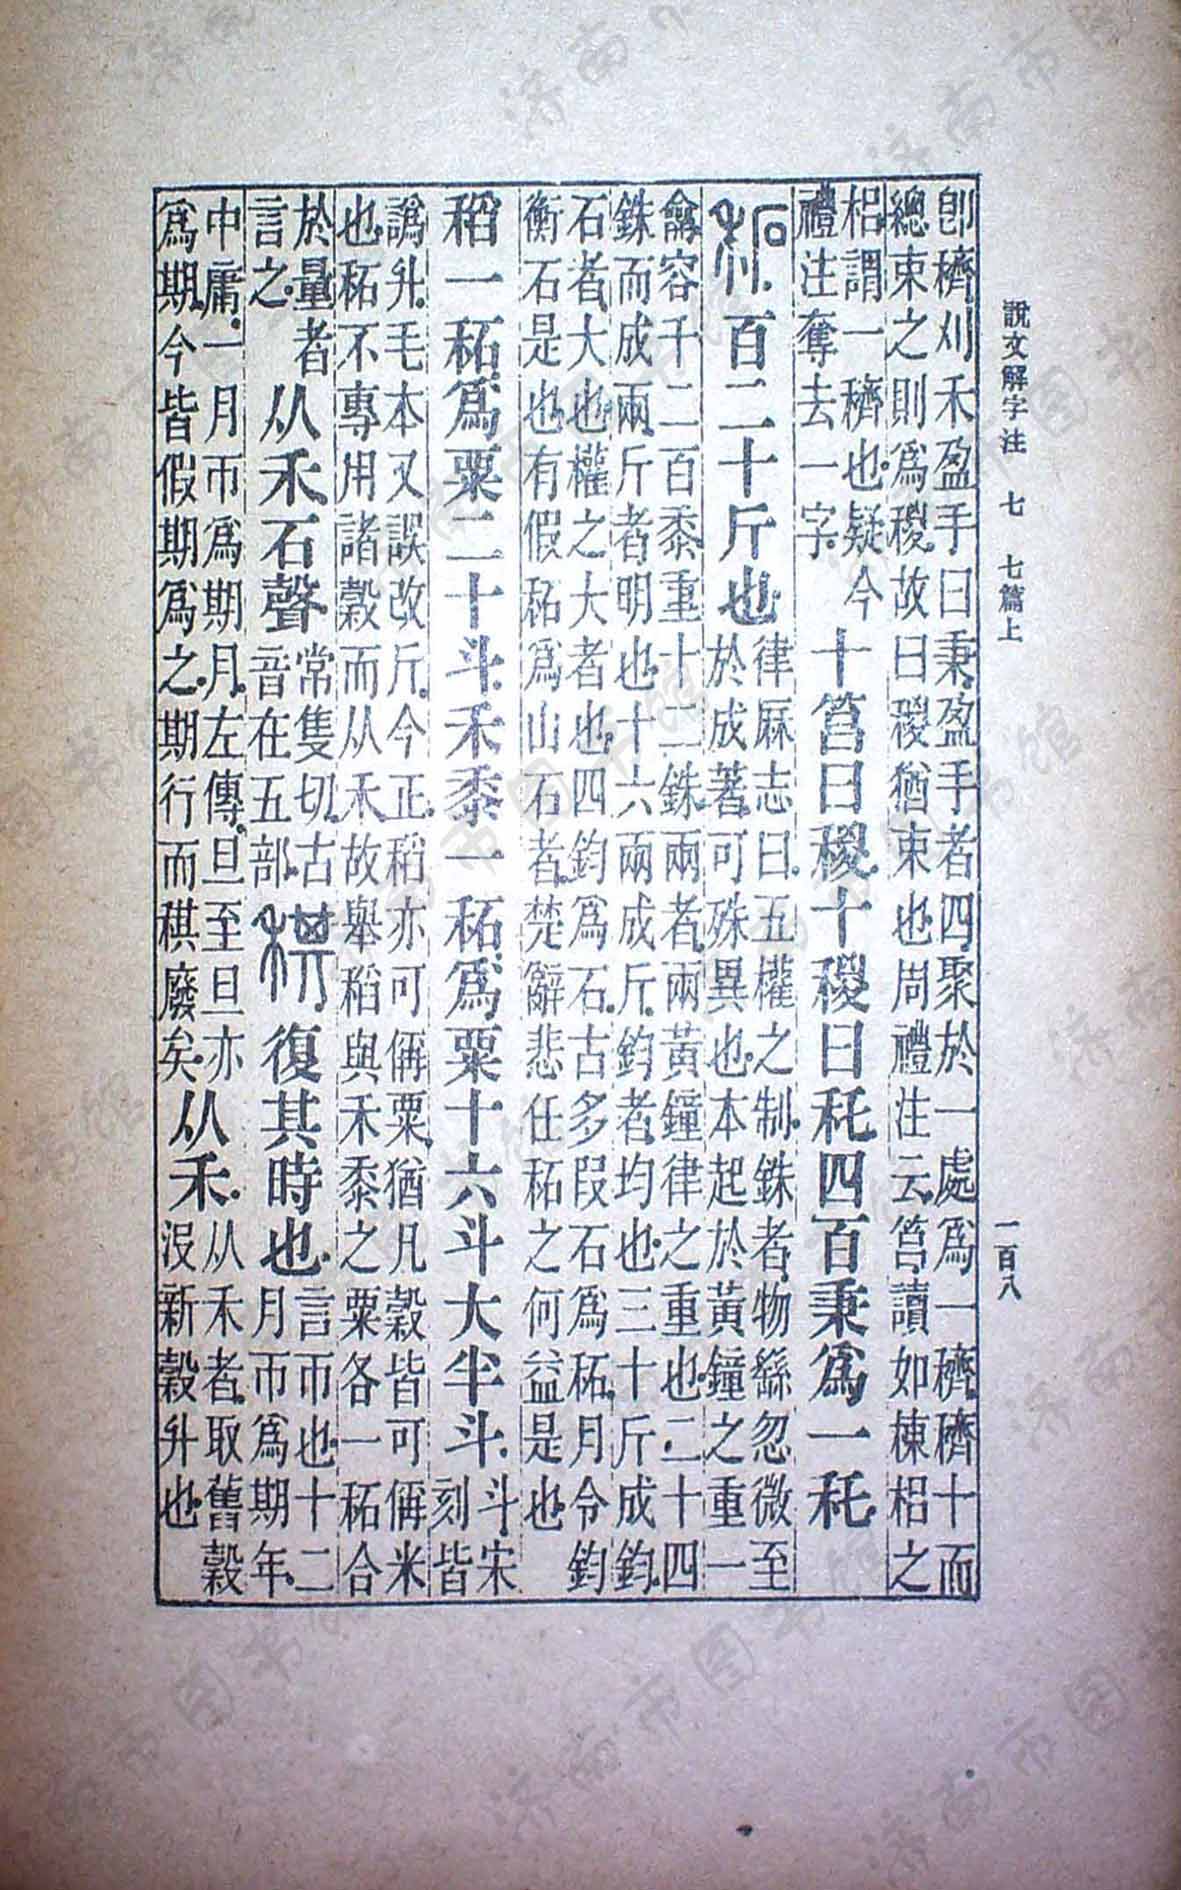 說文解字注 七 七篇上
一百八
卽穧刈禾盈手曰秉盈手者四聚於一處爲一穧穧十而
總束之則爲稯故曰稯猶束也周禮注云筥讀如棟梠之
梠謂一穧也疑今
禮注奪去一字
十筥曰稯十稯曰秅四百秉爲一秅
䄷百二十斤也
律厤志曰五權之制銖者物繇忽微至
於成著可殊異也本起於黃鐘之重一
龠容千二百黍重十二銖兩者兩黃鐘律之重也二十四
銖而成兩斤者明也十六兩成斤鈞者均也三十斤成鈞
石者大也權之大者也四鈞爲石古多叚石爲䄷月令鈞
衡石是也有假䄷爲山石者楚辭悲任䄷之何益是也
稻一䄷爲粟二十斗禾黍一䄷爲粟十六斗大半斗
斗宋
刻皆
譌升毛本又誤改斤今正稻亦可偁粟猶凡穀皆可偁米
也䄷不專用諸穀而从禾故舉稻與禾黍之粟各一䄷合
於量者
言之
从禾石聲
常隻切古
音在五部
稘復其時也
言帀也十二
月帀爲期年
中庸一月帀爲期月左傳旦至旦亦
爲期今皆假期爲之期行而稘廢矣
从禾
从禾者取舊穀
沒新穀升也
济南市图书馆